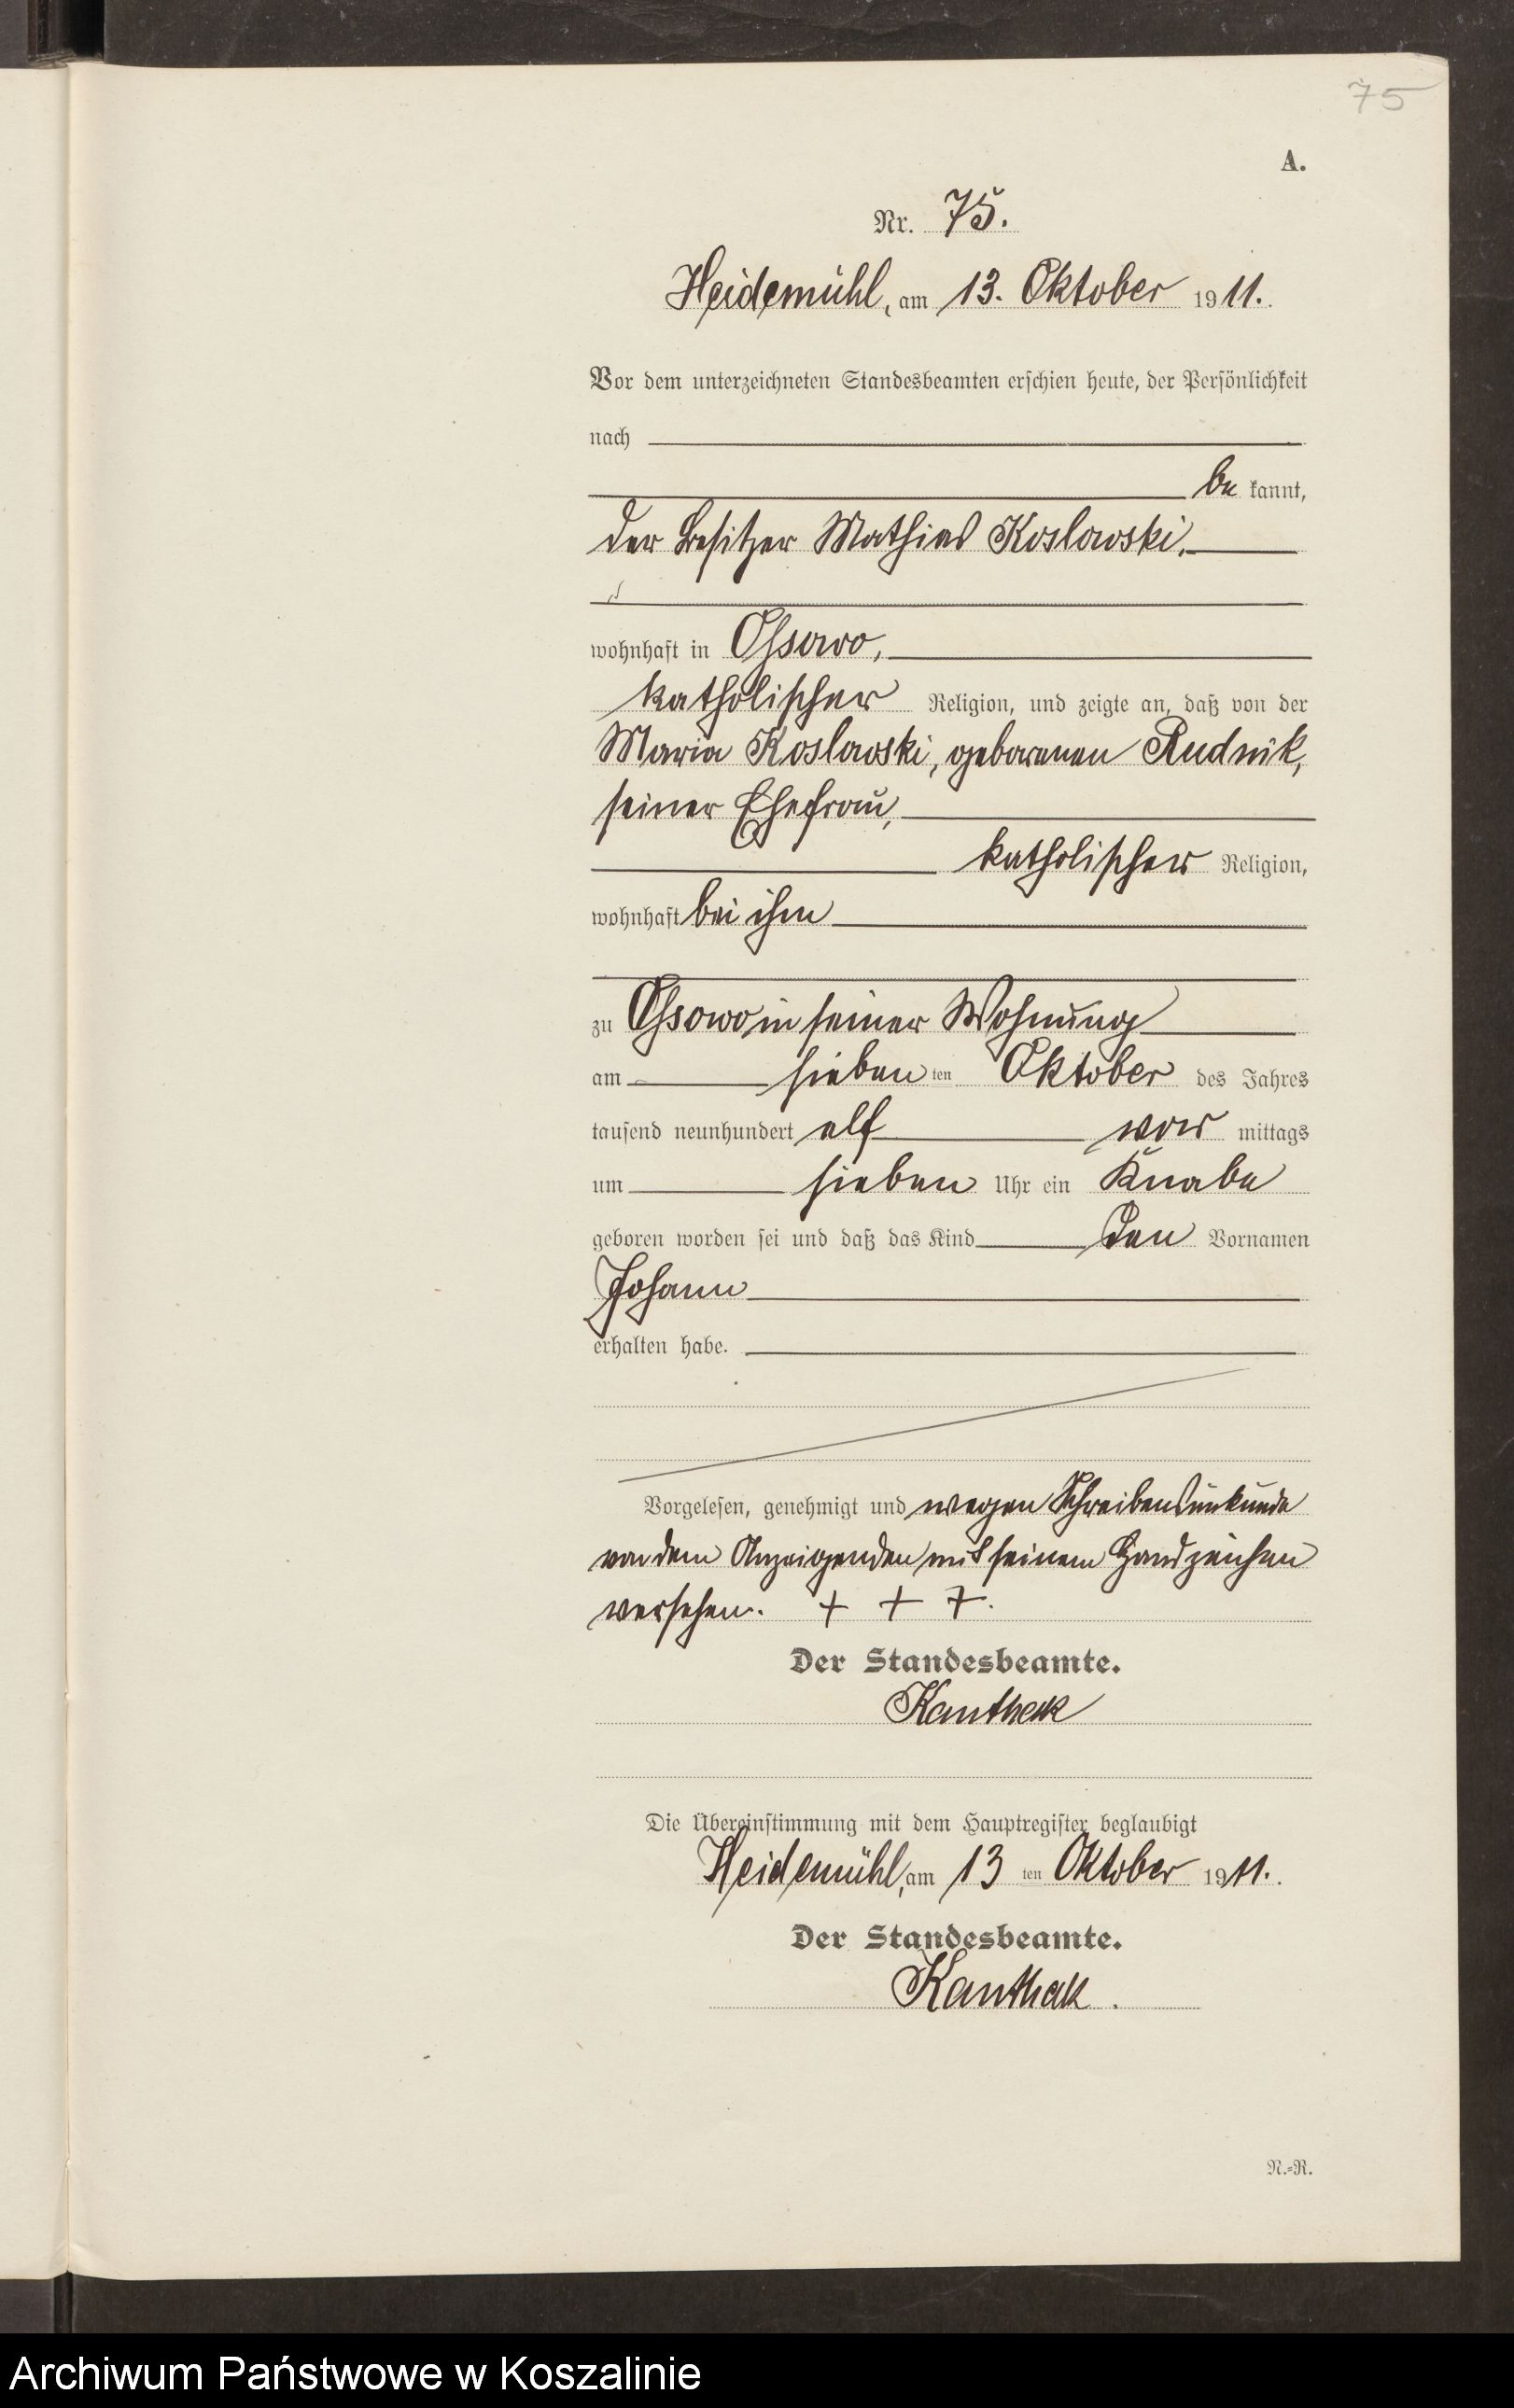 75
A.
Nr. 75.
Heidemühl, am 13. Oktober 1911.
Vor dem unterzeichneten Standesbeamten erschien heute, der Persönlichkeit
nach
be kannt,
der Besitzer Mathias Koslowski,
wohnhaft in Ossowo,
katholischer Religion, und zeigte an, daß von der
Maria Koslowski, geborenen Rudnik,
seiner Ehefrau,
katholischer Religion,
wohnhaft bei ihm
zu Ossowo in seiner Wohnung
am sieben ten Oktober des Jahres
tausend neunhundert elf vor mittags
um sieben Uhr ein Knabe
geboren worden sei und daß das Kind den Vornamen
Johann
erhalten habe.
Vorgelesen, genehmigt und wegen Schreibensunkunde
von dem Anzeigenden mit seinem Handzeichen
versehen. + + +.
Der Standesbeamte.
Kanthak
Die Übereinstimmung mit dem Hauptregister beglaubigt
Heidemühl, am 13 ten Oktober 1911.
Der Standesbeamte.
Kanthak.
N.=R.
Archiwum Państwowe w Koszalinie